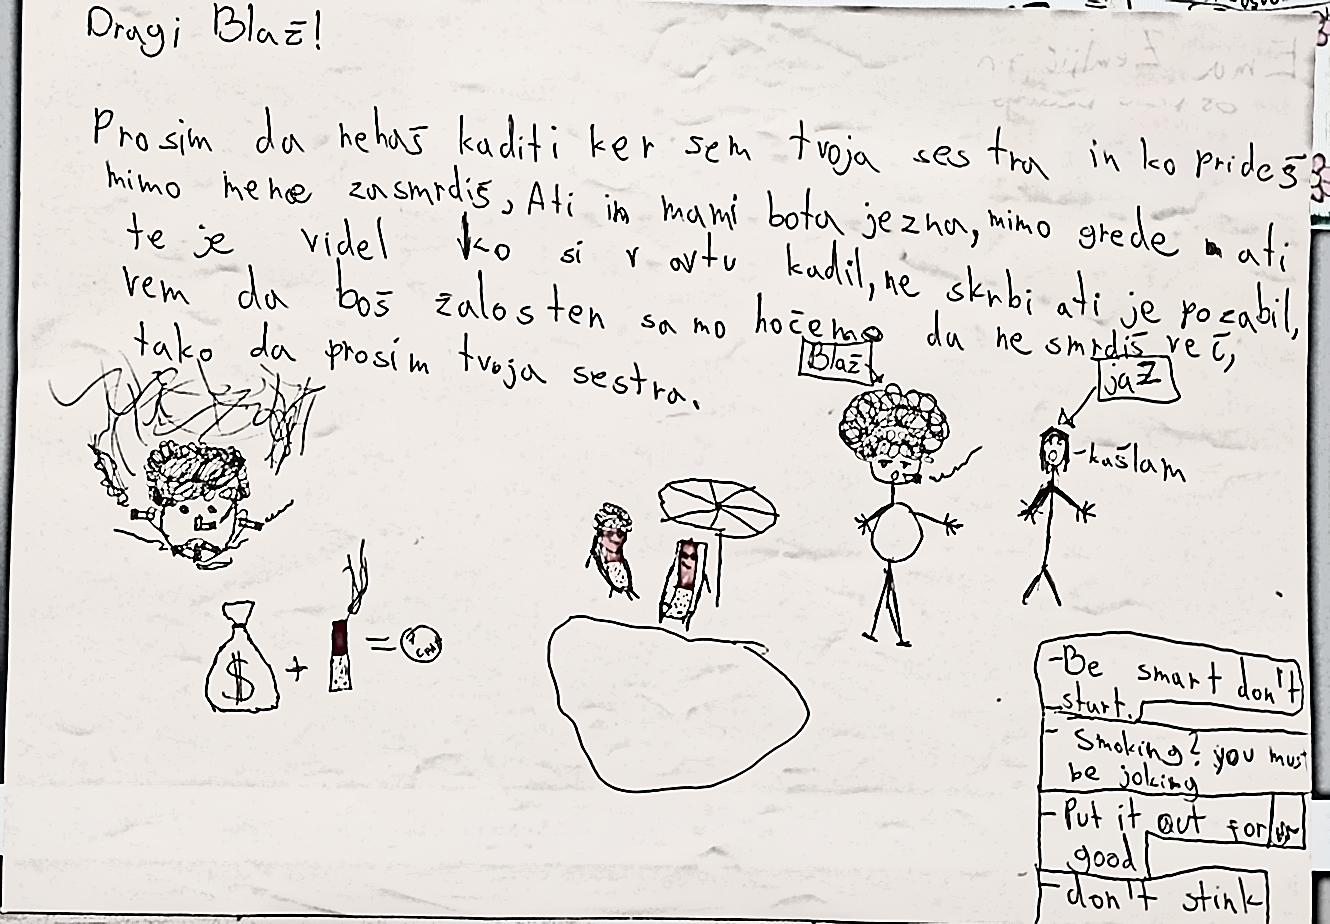 Dragi Blaž!
Prosim da nehaš kaditi ker sem tvoja sestra in ko prideš
mimo mene zasmrdiš, Ati in mami bota jezna, mimo grede ati
te je videl ko si v avtu kadil, ne skrbi ati je pozabil,
vem da boš žalosten samo hočemo da ne smrdiš več,
tako da prosim tvoja sestra.
Blaž
jaZ
-kašlam
$ + =
-Be smart don't
start.
- Smoking? you must
be joking
-Put it out for
good
-don't stink